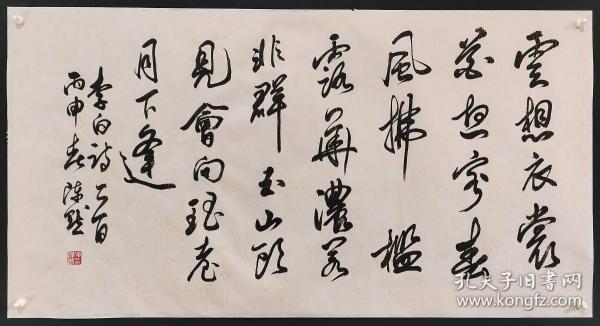 雲想衣裳
花想容春
風拂檻
露華濃若
非群玉山頭
見會向瑶臺
月下逢
李白詩一首
丙申春陳默
孔夫子旧书网
www.kongfz.com